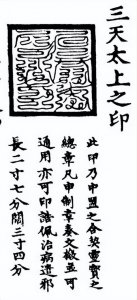 三天太上之印
此印乃中盟之合契靈寶之
總章凡申制章奏文檄並可
通用亦可印誥佩治病遣邪
長二寸七分闊三寸四分